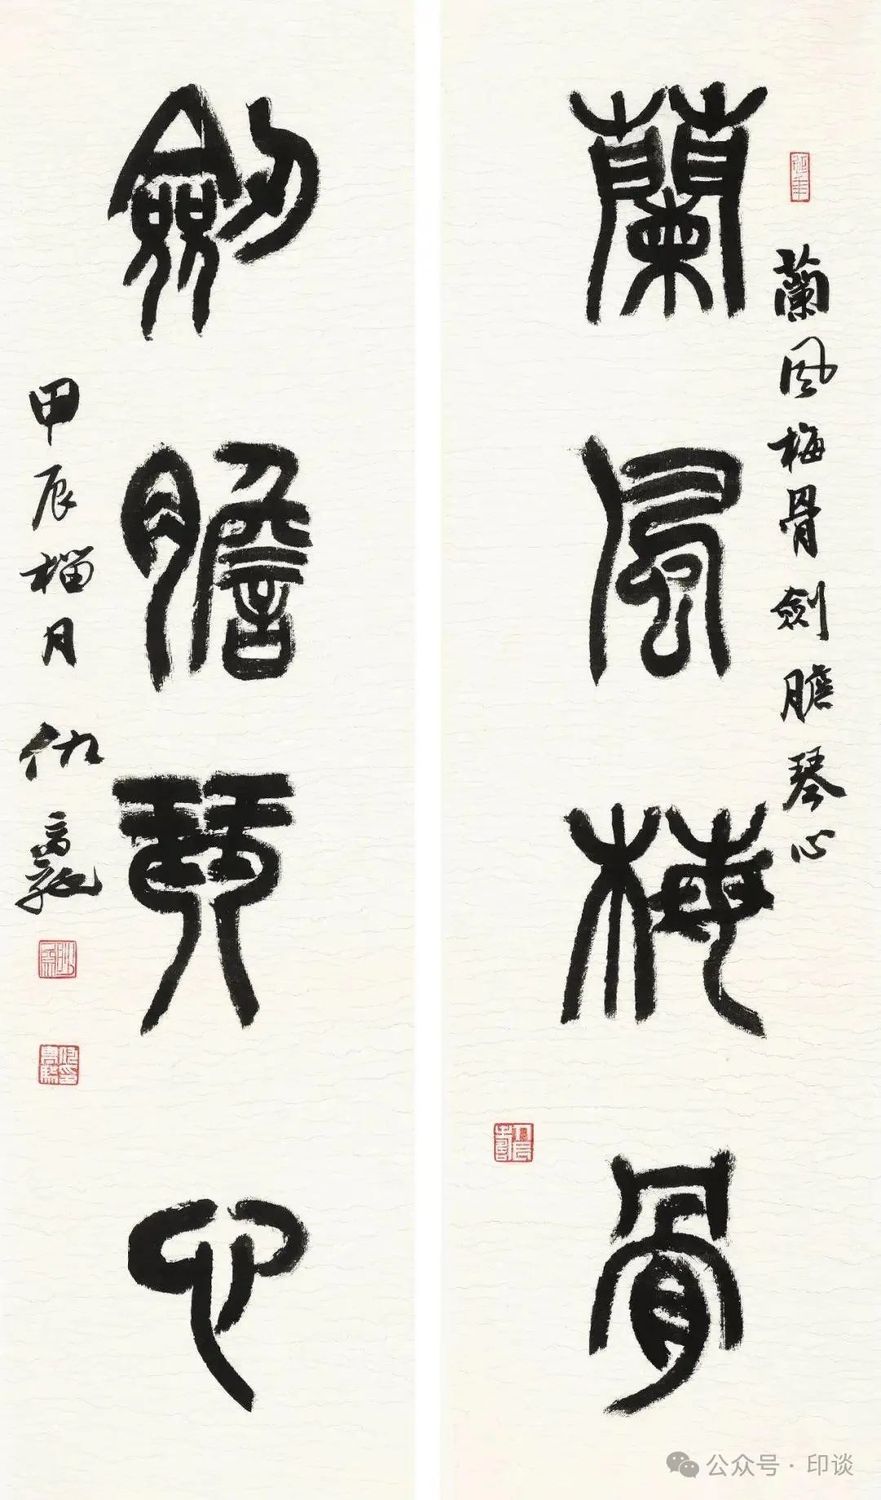 蘭風梅骨
蘭風梅骨劍膽琴心
劍膽琴心
甲辰榴月仇高馳
公众号·印谈